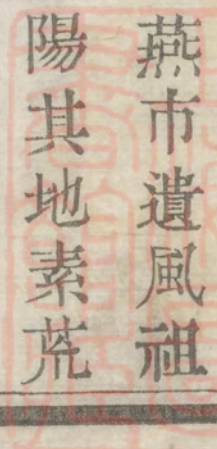 燕市遺風祖
陽其地素荒